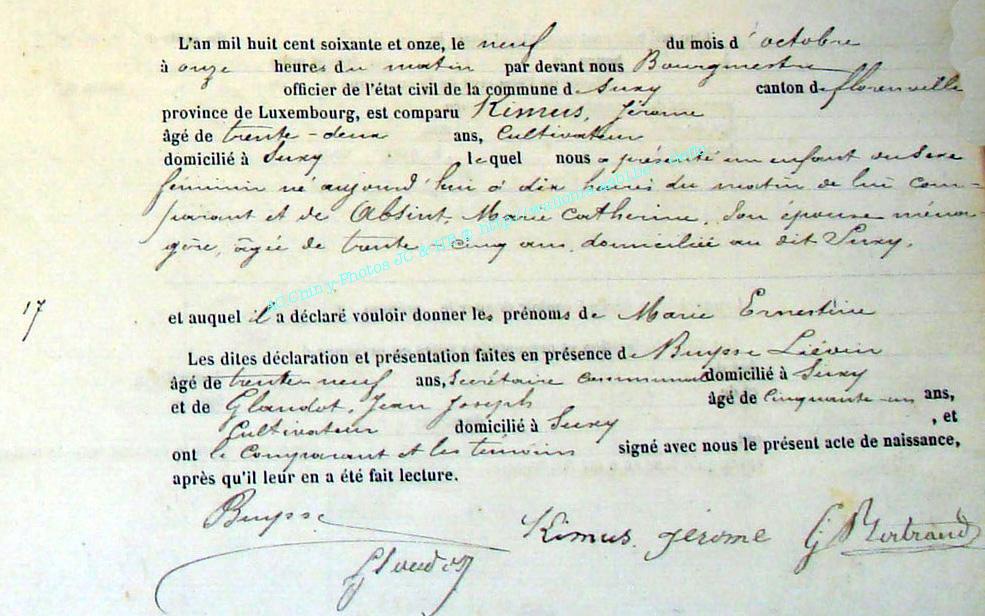 L'an mil huit cent soixante et onze, le neuf du mois d'octobre
à onze heures du matin par devant nous Bourgmestre
officier de l'état civil de la commune de Suxy canton de florenville
province de Luxembourg, est comparu Kimus, Jérome
âgé de trente-deux ans, Cultivateur
domicilié à Suxy lequel nous a présenté un enfant du sexe
féminin né aujourd'hui à dix heures du matin de lui com-
parant et de Absint, Marie Catherine, son épouse ména-
gère, âgée de trente-cinq ans, domiciliée au dit Suxy.
17
et auquel il a déclaré vouloir donner les prénoms de Marie Ernestine
Les dites déclaration et présentation faites en présence de Buysse Liévin
âgé de trente-neuf ans, Secrétaire communal domicilié à Suxy
et de Glaudot, Jean Joseph âgé de cinquante-un ans,
Cultivateur domicilié à Suxy, et
ont le Comparant et les témoins signé avec nous le présent acte de naissance,
après qu'il leur en a été fait lecture.
Buysse
Kimus Jérome
Bertrand
Glaudot
AC Chiny Photos JC &